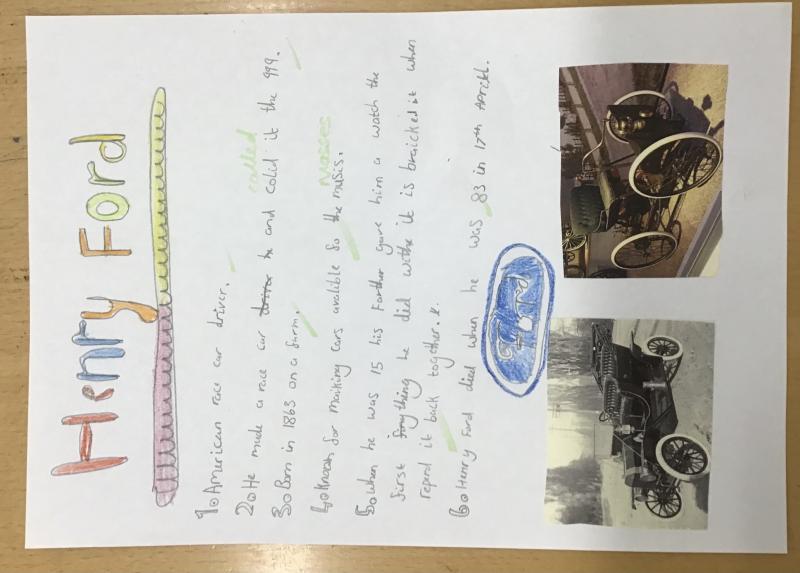 Henry Ford
1. American race car driver.
called
2. He made a race car driver he and colid it the 999.
3. Born in 1863 on a farm.
masses
4. Known for maiking cars avalible so the masis.
5. When he was 15 his Farther gave him a watch the
first finything he did withe it is braicked it when
repend it back together.
6. Henry Ford died when he was 83 in 17th Aprikl.
Ford